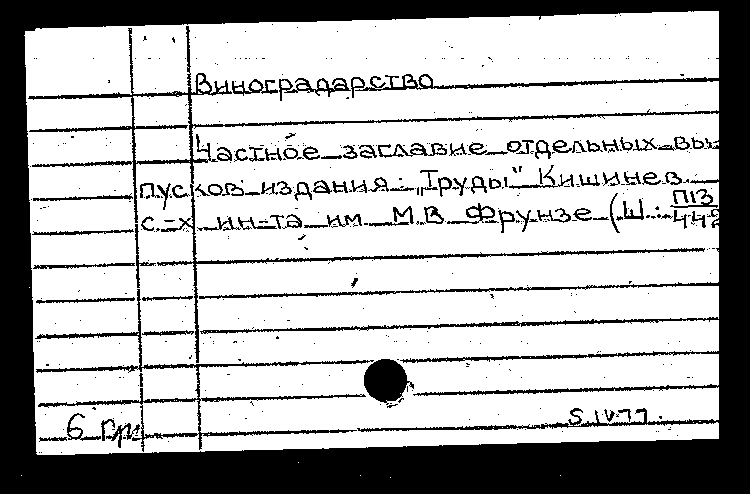 Виноградарство
Частное заглавие отдельных вы-
пусков издания: „Труды" Кишинев.
с-х ин-та им М В Фрунзе (Ш: П13/442
6 гри
5.IV77.